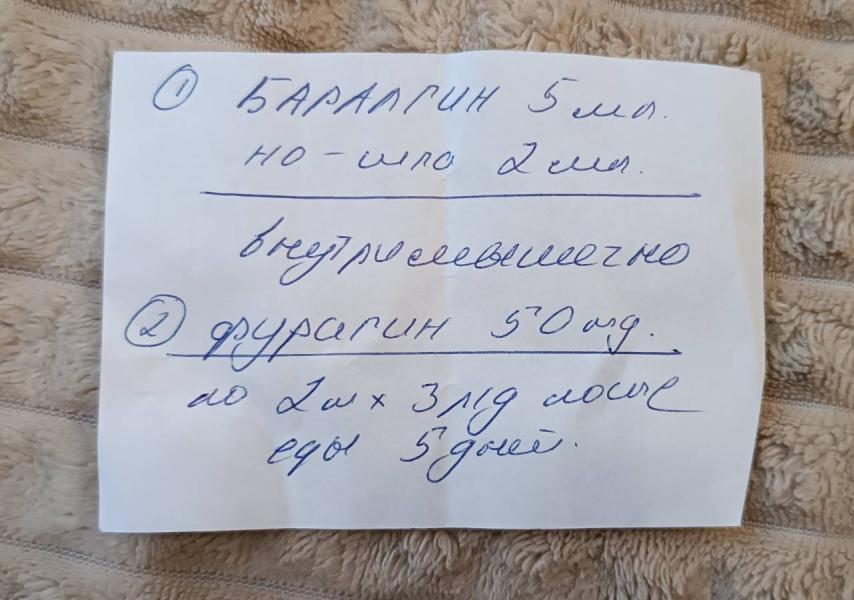 ① БАРАЛГИН 5 мл.
но-шпа 2 мл.
внутримышечно
② фурагин 50 mg.
по 2т х 3 р/д после
еды 5 дней.